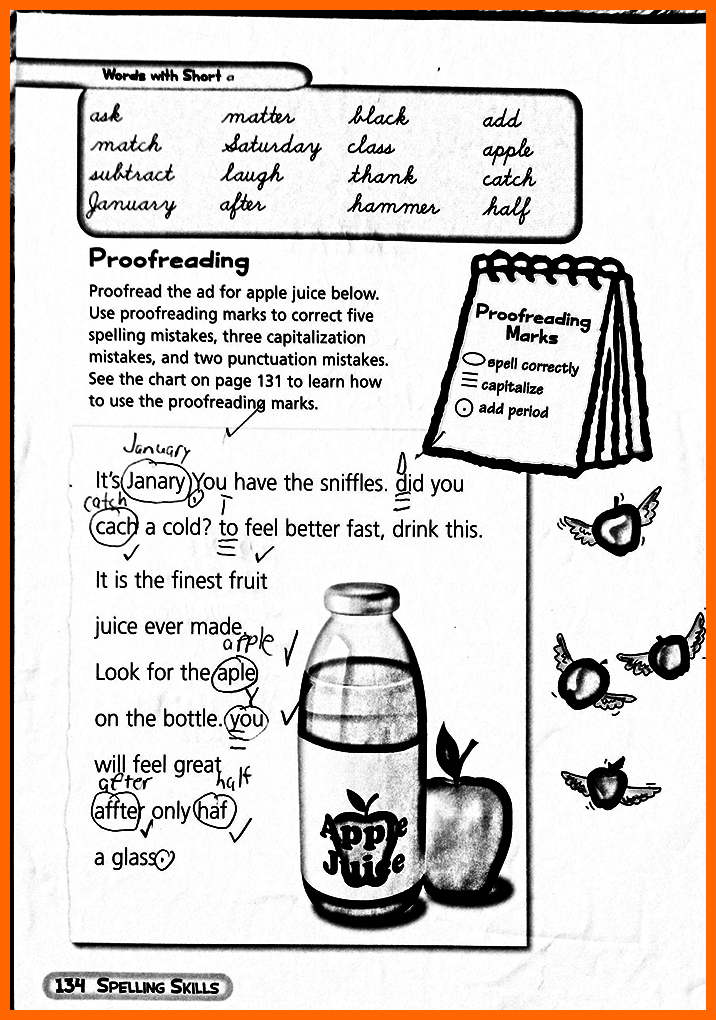 Words with Short a
ask matter black add
match Saturday class apple
subtract laugh thank catch
January after hammer half
Proofreading
Proofread the ad for apple juice below.
Use proofreading marks to correct five
spelling mistakes, three capitalization
mistakes, and two punctuation mistakes.
See the chart on page 131 to learn how
to use the proofreading marks.
Proofreading
Marks
spell correctly
capitalize
add period
January
It's Janary You have the sniffles. did you
D
catch
cach a cold? to feel better fast, drink this.
T
It is the finest fruit
juice ever made.
apple
Look for the aple
Y
on the bottle. you
will feel great
after half
affter only haf
a glass.
Apple
Juice
134 SPELLING SKILLS